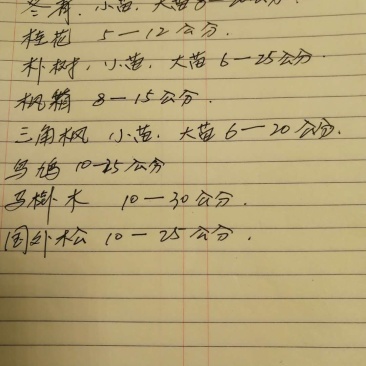 冬青.小苗.大苗8—20公分.
桂花 5—12公分.
朴树.小苗.大苗6—25公分.
枫箱 8—15公分.
三角枫 小苗.大苗6—20公分.
乌鸠 10—25公分
马褂木 10—30公分.
国外松 10—25公分.